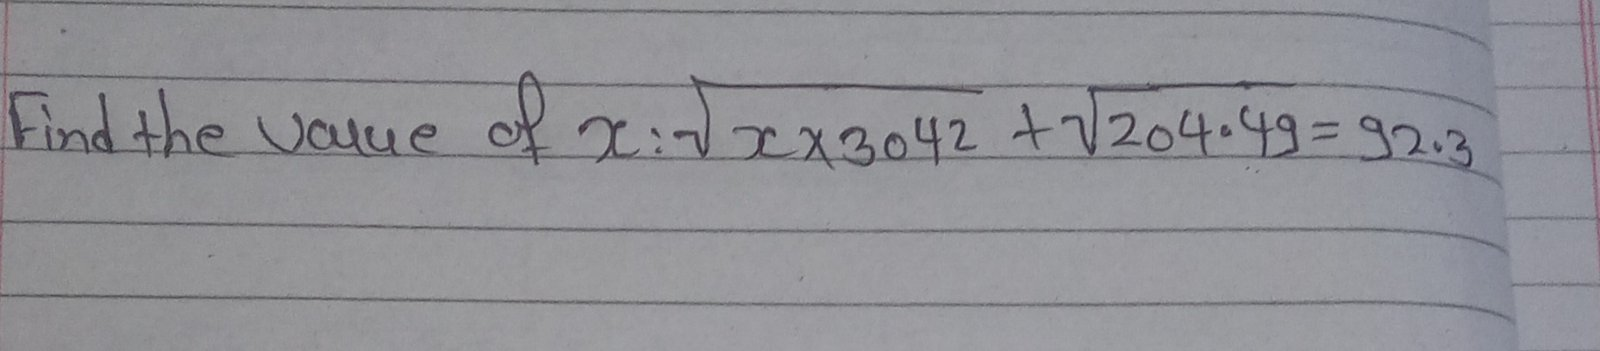 Find the value of x: √x×3042 + √204.49 = 92.3